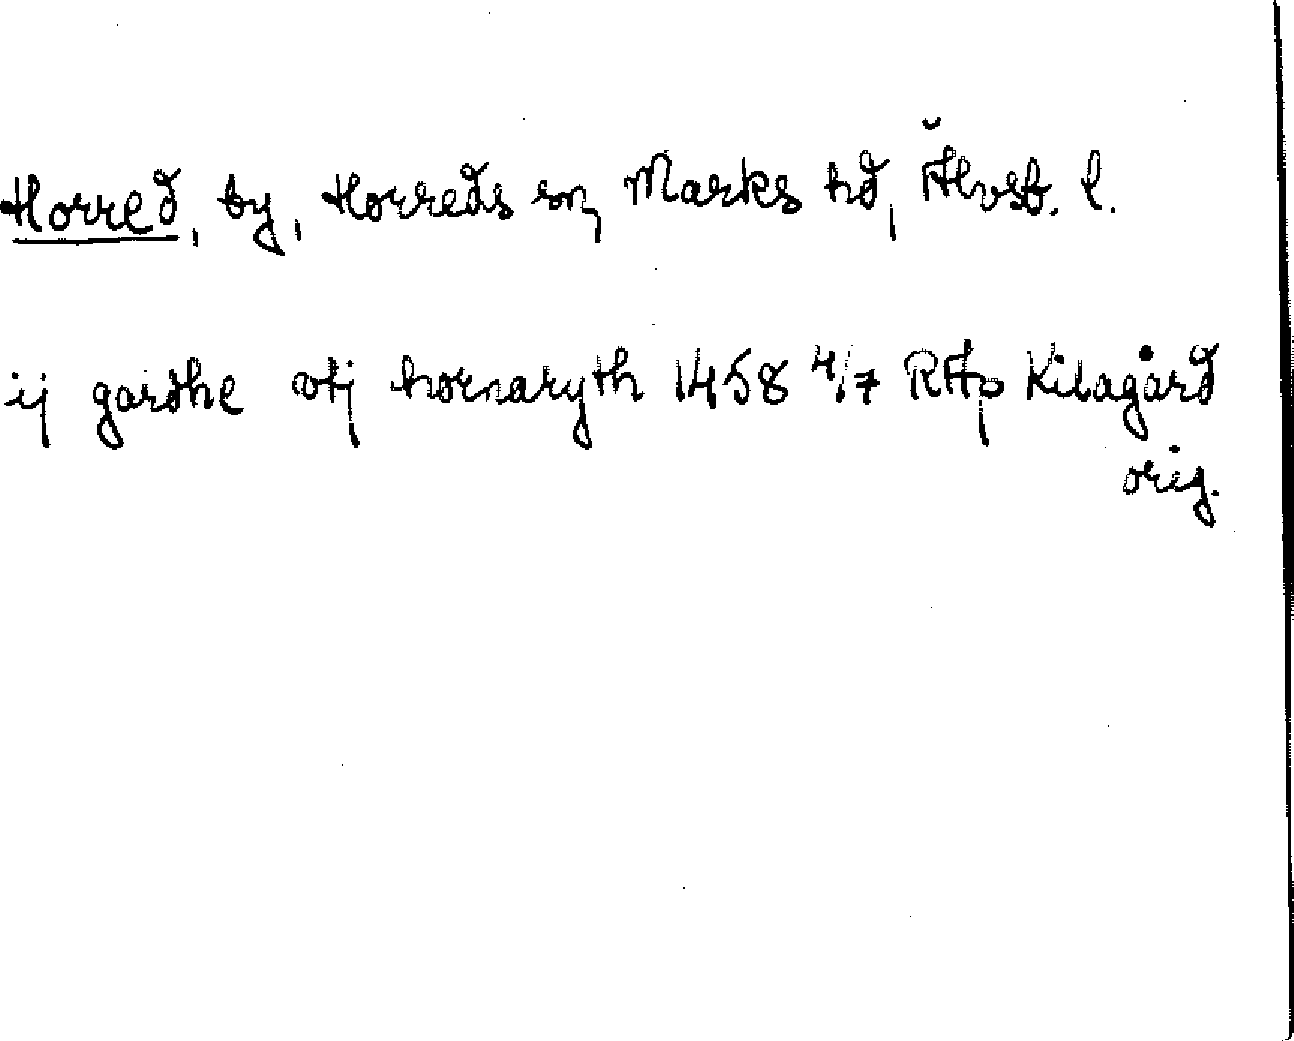 Horred, by, Horreds sn, Marks hd, Älvsb. l.
ij gardhe vtj hornaryth 1458 4/7 RAp Kilagård
orig.